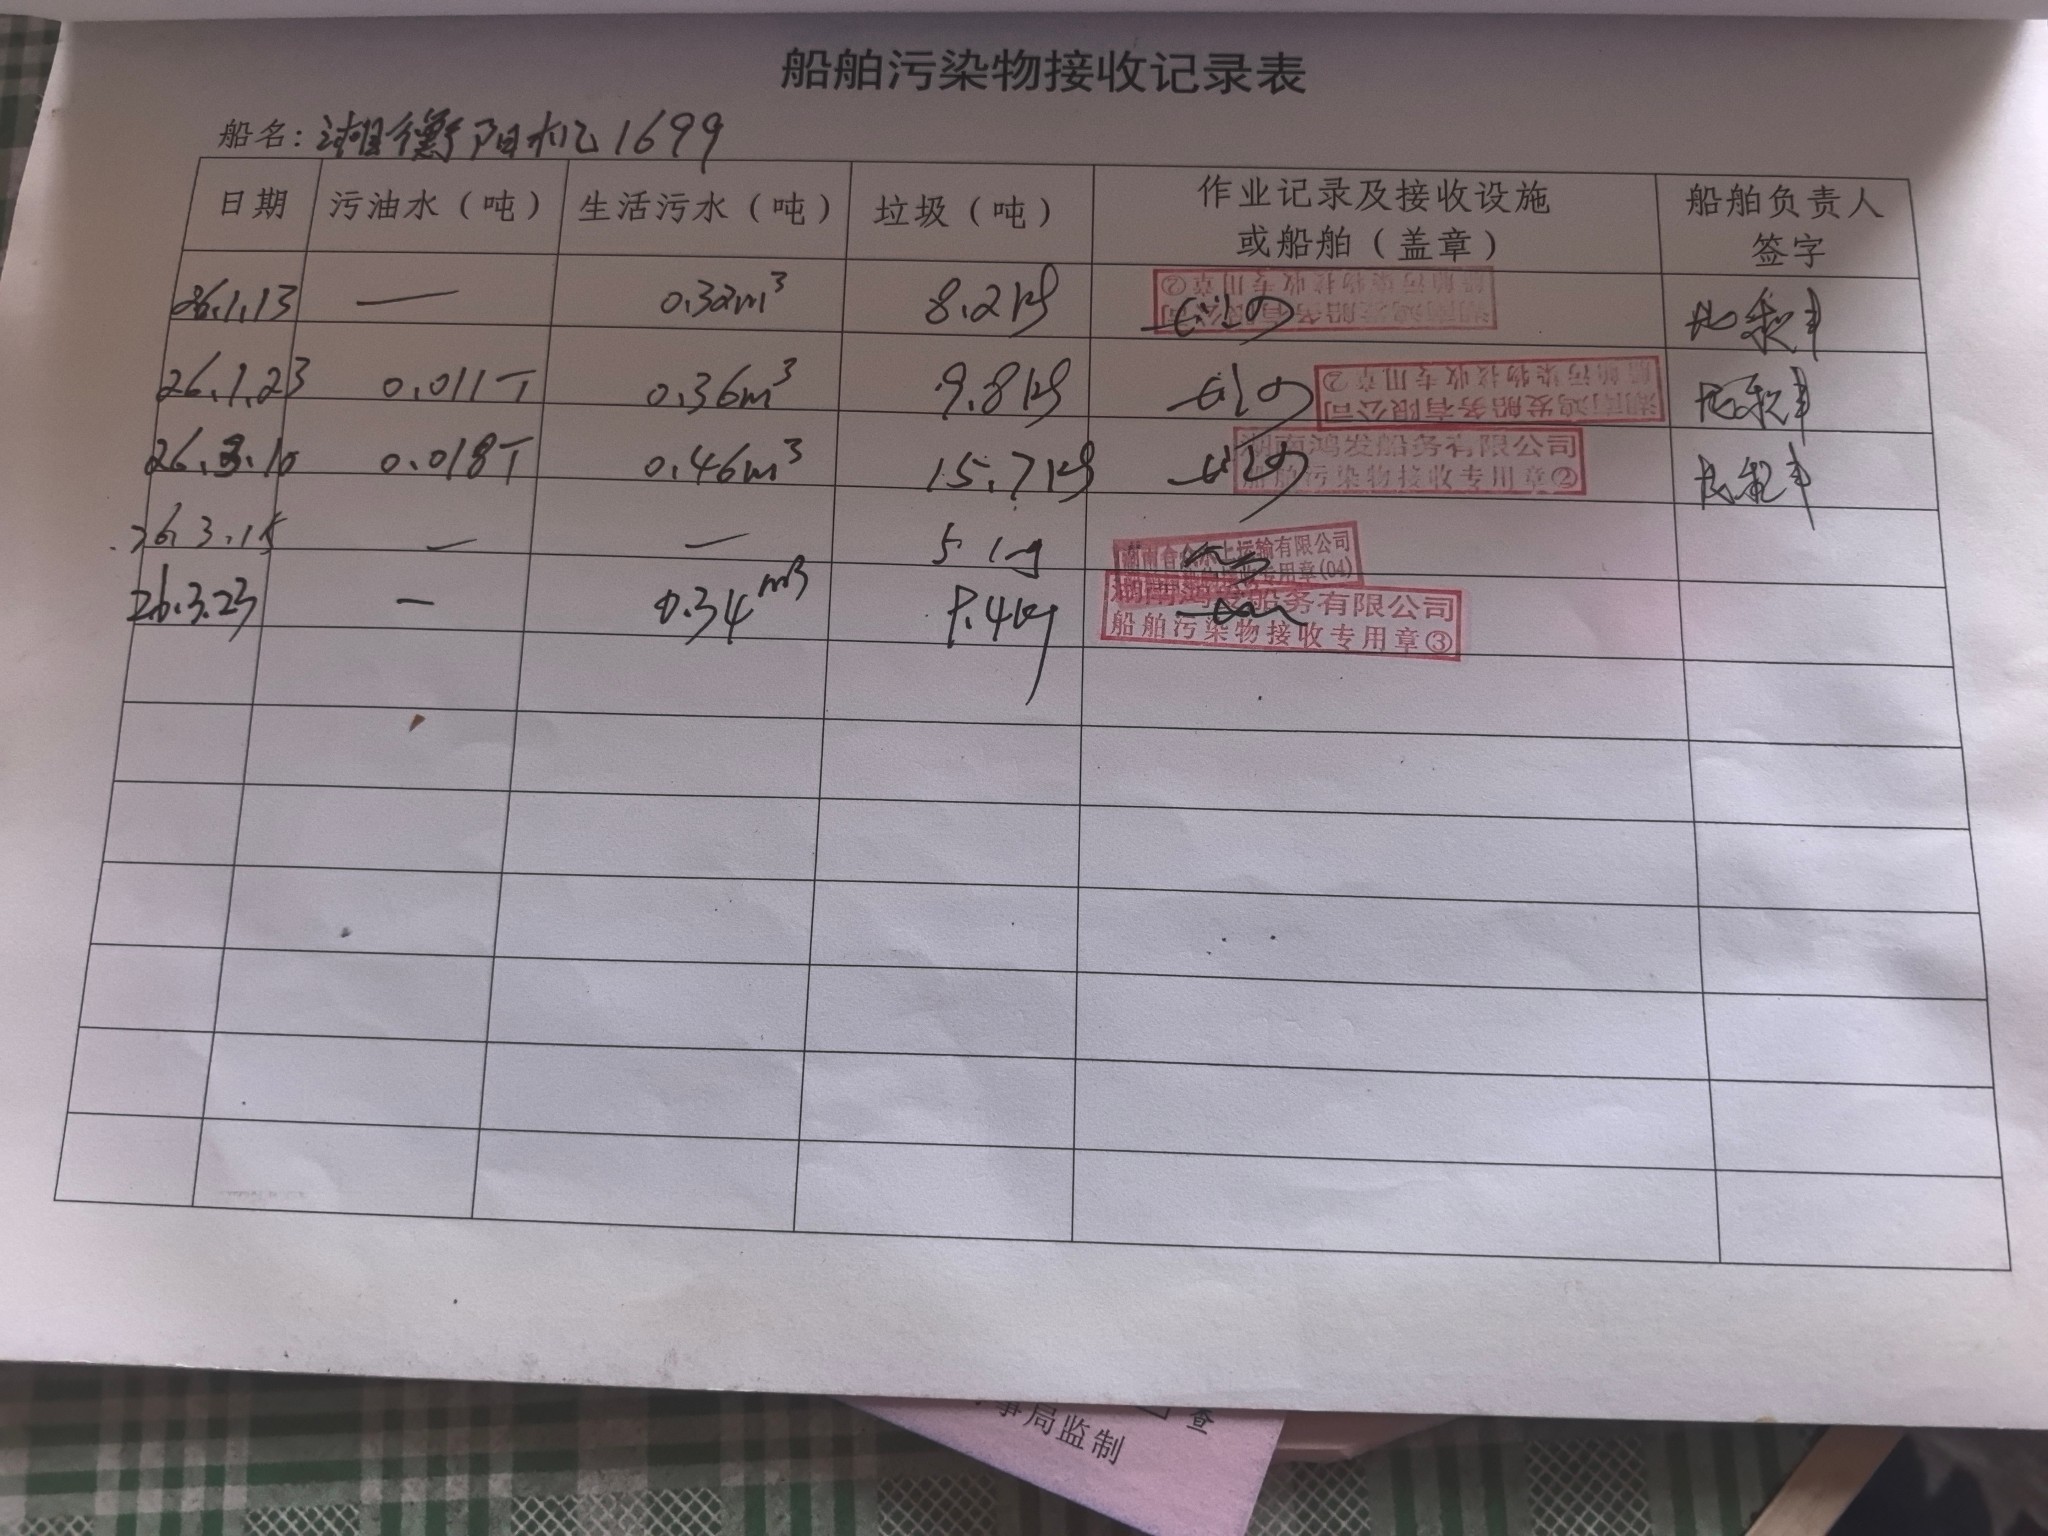 船舶污染物接收记录表
船名: 湘衡阳机1699
日期 污油水（吨） 生活污水（吨） 垃圾（吨） 作业记录及接收设施或船舶（盖章） 船舶负责人签字
26.1.13 — 0.32m³ 8.2kg 湖南鸿发船务有限公司 船舶污染物接收专用章②
26.1.23 0.011T 0.36m³ 9.8kg 湖南鸿发船务有限公司 船舶污染物接收专用章②
26.3.10 0.018T 0.46m³ 15.7kg 湖南鸿发船务有限公司 船舶污染物接收专用章②
26.3.15 — — 5.1kg 水上运输有限公司 专用章(04)
26.3.23 — 0.34m³ 9.4kg 湖南鸿发船务有限公司 船舶污染物接收专用章③
查
事局监制